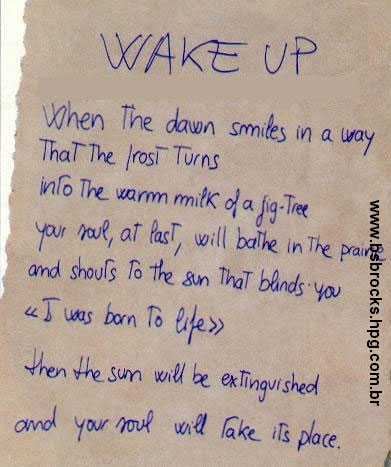 WAKE UP
When the dawn smiles in a way
That The frost Turns
into The warm milk of a fig-Tree
your soul, at last, will bathe in The
and shouts To the sun That blinds you
«I was born To life»
then the sun will be extinguished
and your soul will Take its place.
www.bsbrocks.hpg.com.br